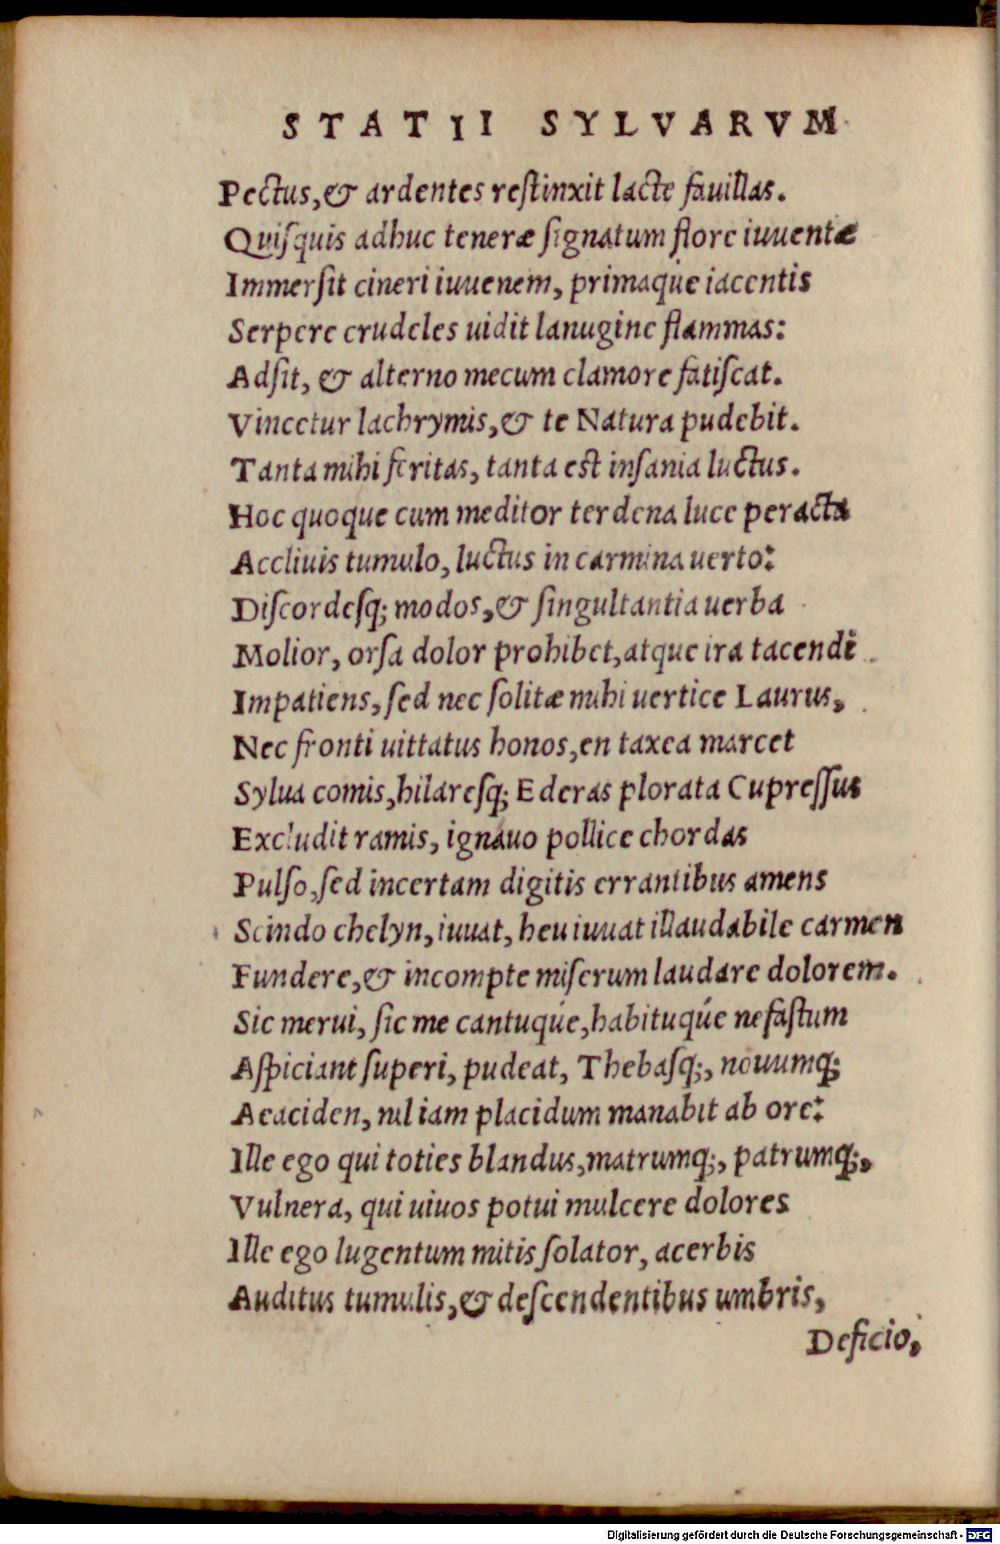 STATII SYLVARVM
Pectus,& ardentes reſtinxit lacte fauillas.
Quiſquis adhuc teneræ ſignatum flore iuuentæ
Immerſit cineri iuuenem, primaqúe iacentis
Serpere crudeles uidit lanugine flammas:
Adſit, & alterno mecum clamore fatiſcat.
Vincetur lachrymis,& te Natura pudebit.
Tanta mihi feritas, tanta est inſania luctus.
Hoc quoque cum meditor terdena luce peracta
Accliuis tumulo, luctus in carmina uerto:
Diſcordeſq; modos,& ſingultantia uerba
Molior, orſa dolor prohibet,atque ira tacendi
Impatiens,ſed nec ſolitæ mihi uertice Laurus,
Nec fronti uittatus honos,en taxea marcet
Sylua comis,hilareſq; Ederas plorata Cupreſſus
Excludit ramis, ignauo pollice chordas
Pulſo,ſed incertam digitis errantibus amens
Scindo chelyn,iuuat, heu iuuat illaudabile carmen
Fundere,& incompte miſerum laudare dolorem.
Sic merui, ſic me cantuqúe,habituqúe nefaſtum
Aſpiciant ſuperi, pudeat, Thebaſq;, nouumq;
Aeaciden, nil iam placidum manabit ab ore:
Ille ego qui toties blandus,matrumq;, patrumq;,
Vulnera, qui uiuos potui mulcere dolores
Ille ego lugentum mitis ſolator, acerbis
Auditus tumulis,& deſcendentibus umbris,
Deficio,
Digitalisierung gefördert durch die Deutsche Forschungsgemeinschaft - DFG